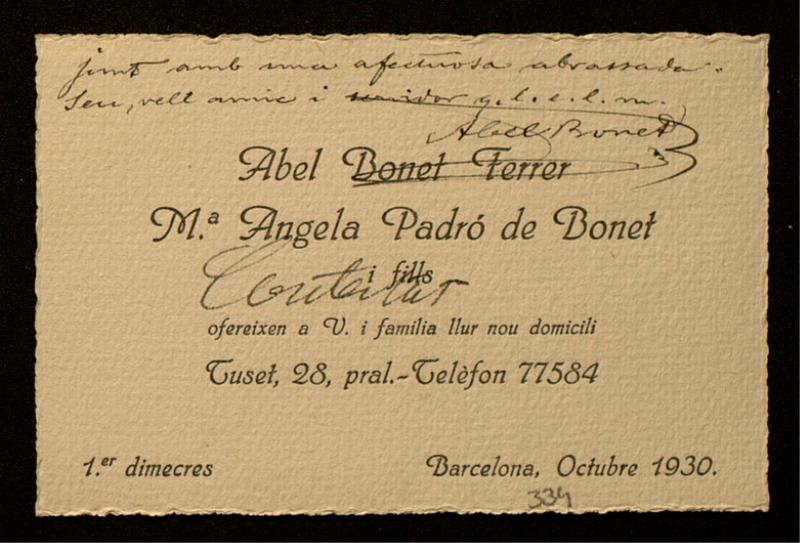 junt amb una afectuosa abrassada.
Seu, vell amic i servidor q. l. e. l. m.
Abel Bonet
Abel Bonet Ferrer
M.ª Angela Padró de Bonet
i fills
Contestat
ofereixen a V. i família llur nou domicili
Tuset, 28, pral.-Telèfon 77584
1.er dimecres
Barcelona, Octubre 1930.
334